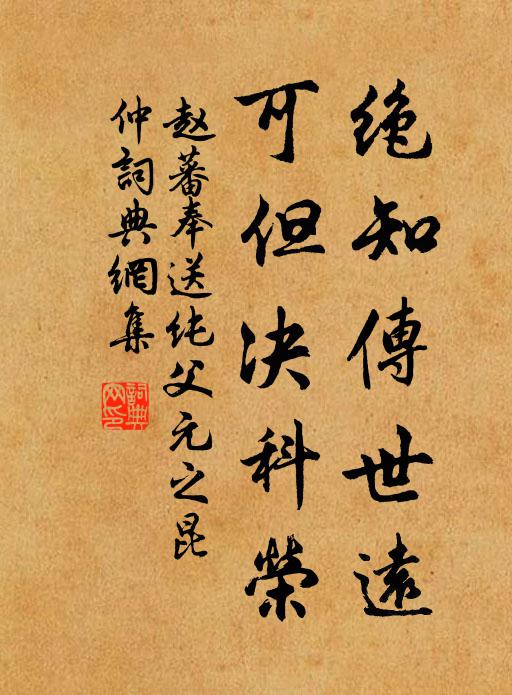 绝知傳世遠
可但决科榮
赵蕃奉送纯父元之昆
仲詞典網集
詞典
网印